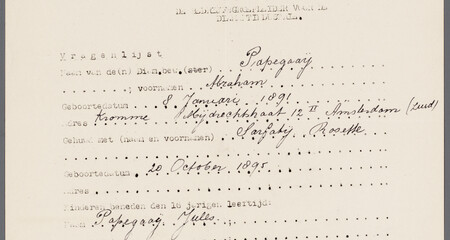 Vragenlijst
Naam van de(n) Dienbode(ster) Papegaaÿ
" " voornamen Abraham
Geboortedatum 8 Januari 1891
Adres Kromme Mijdrechtstraat 12 II Amsterdam (Zuid)
Gehuwd met (naam en voornamen) Rosette
Geboortedatum 20 October 1895
Adres
Kinderen beneden den 16 jarigen leeftijd:
Naam Papegaaÿ Jules